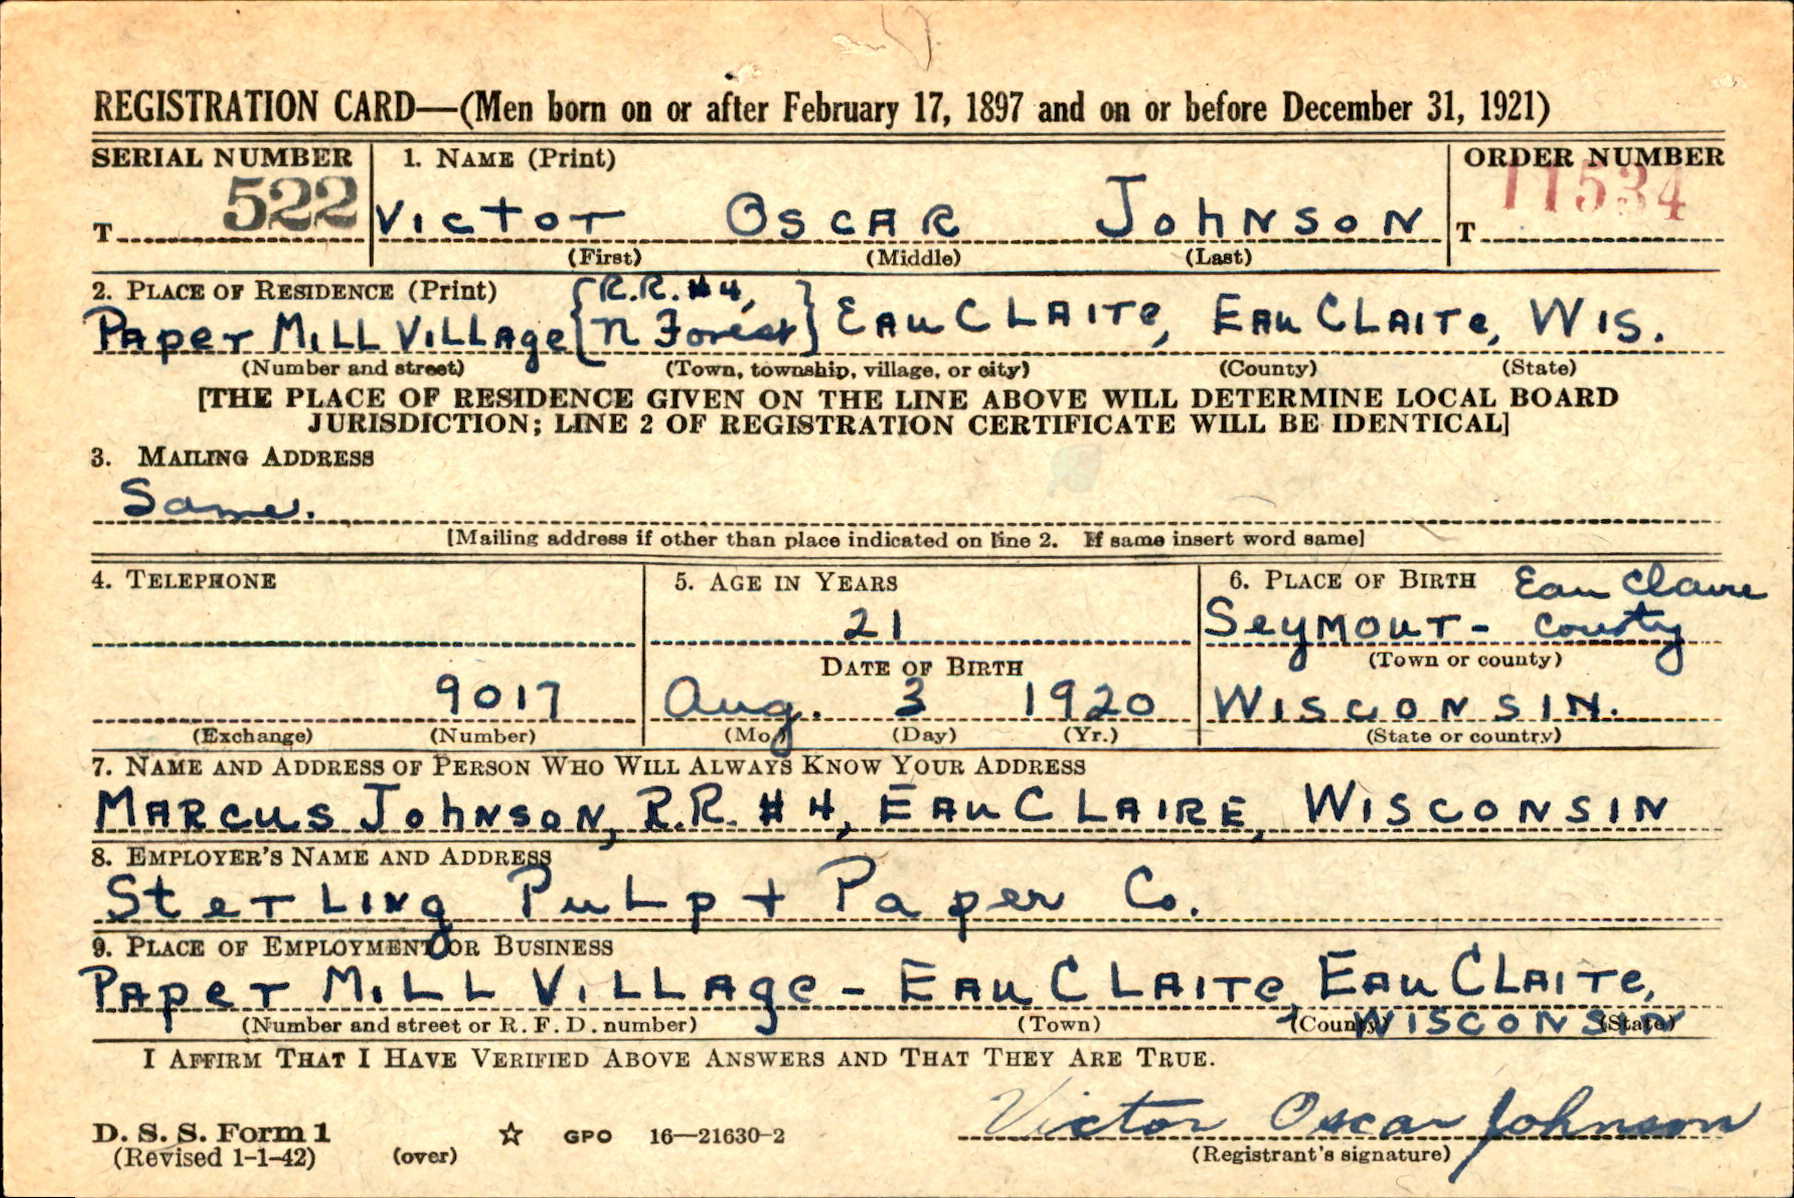 REGISTRATION CARD—(Men born on or after February 17, 1897 and on or before December 31, 1921)
SERIAL NUMBER 1. NAME (Print) ORDER NUMBER
T 522 Victor Oscar Johnson T 11534
(First) (Middle) (Last)
2. PLACE OF RESIDENCE (Print) {R.R. #4,
Paper Mill Village {N Forest} Eau Claire, Eau Claire, Wis.
(Number and street) (Town, township, village, or city) (County) (State)
[THE PLACE OF RESIDENCE GIVEN ON THE LINE ABOVE WILL DETERMINE LOCAL BOARD
JURISDICTION; LINE 2 OF REGISTRATION CERTIFICATE WILL BE IDENTICAL]
3. MAILING ADDRESS
Same.
[Mailing address if other than place indicated on line 2. If same insert word same]
4. TELEPHONE 5. AGE IN YEARS 6. PLACE OF BIRTH Eau Claire
21 Seymour - County
DATE OF BIRTH (Town or county)
9017 Aug. 3 1920 Wisconsin.
(Exchange) (Number) (Mo.) (Day) (Yr.) (State or country)
7. NAME AND ADDRESS OF PERSON WHO WILL ALWAYS KNOW YOUR ADDRESS
Marcus Johnson, R.R. #4, Eau Claire, Wisconsin
8. EMPLOYER'S NAME AND ADDRESS
Sterling Pulp + Paper Co.
9. PLACE OF EMPLOYMENT OR BUSINESS
Paper Mill Village - Eau Claire, Eau Claire,
(Number and street or R. F. D. number) (Town) (County) Wisconsin (State)
I AFFIRM THAT I HAVE VERIFIED ABOVE ANSWERS AND THAT THEY ARE TRUE.
Victor Oscar Johnson
D. S. S. Form 1 ☆ GPO 16—21630-2
(Revised 1-1-42) (over) (Registrant's signature)